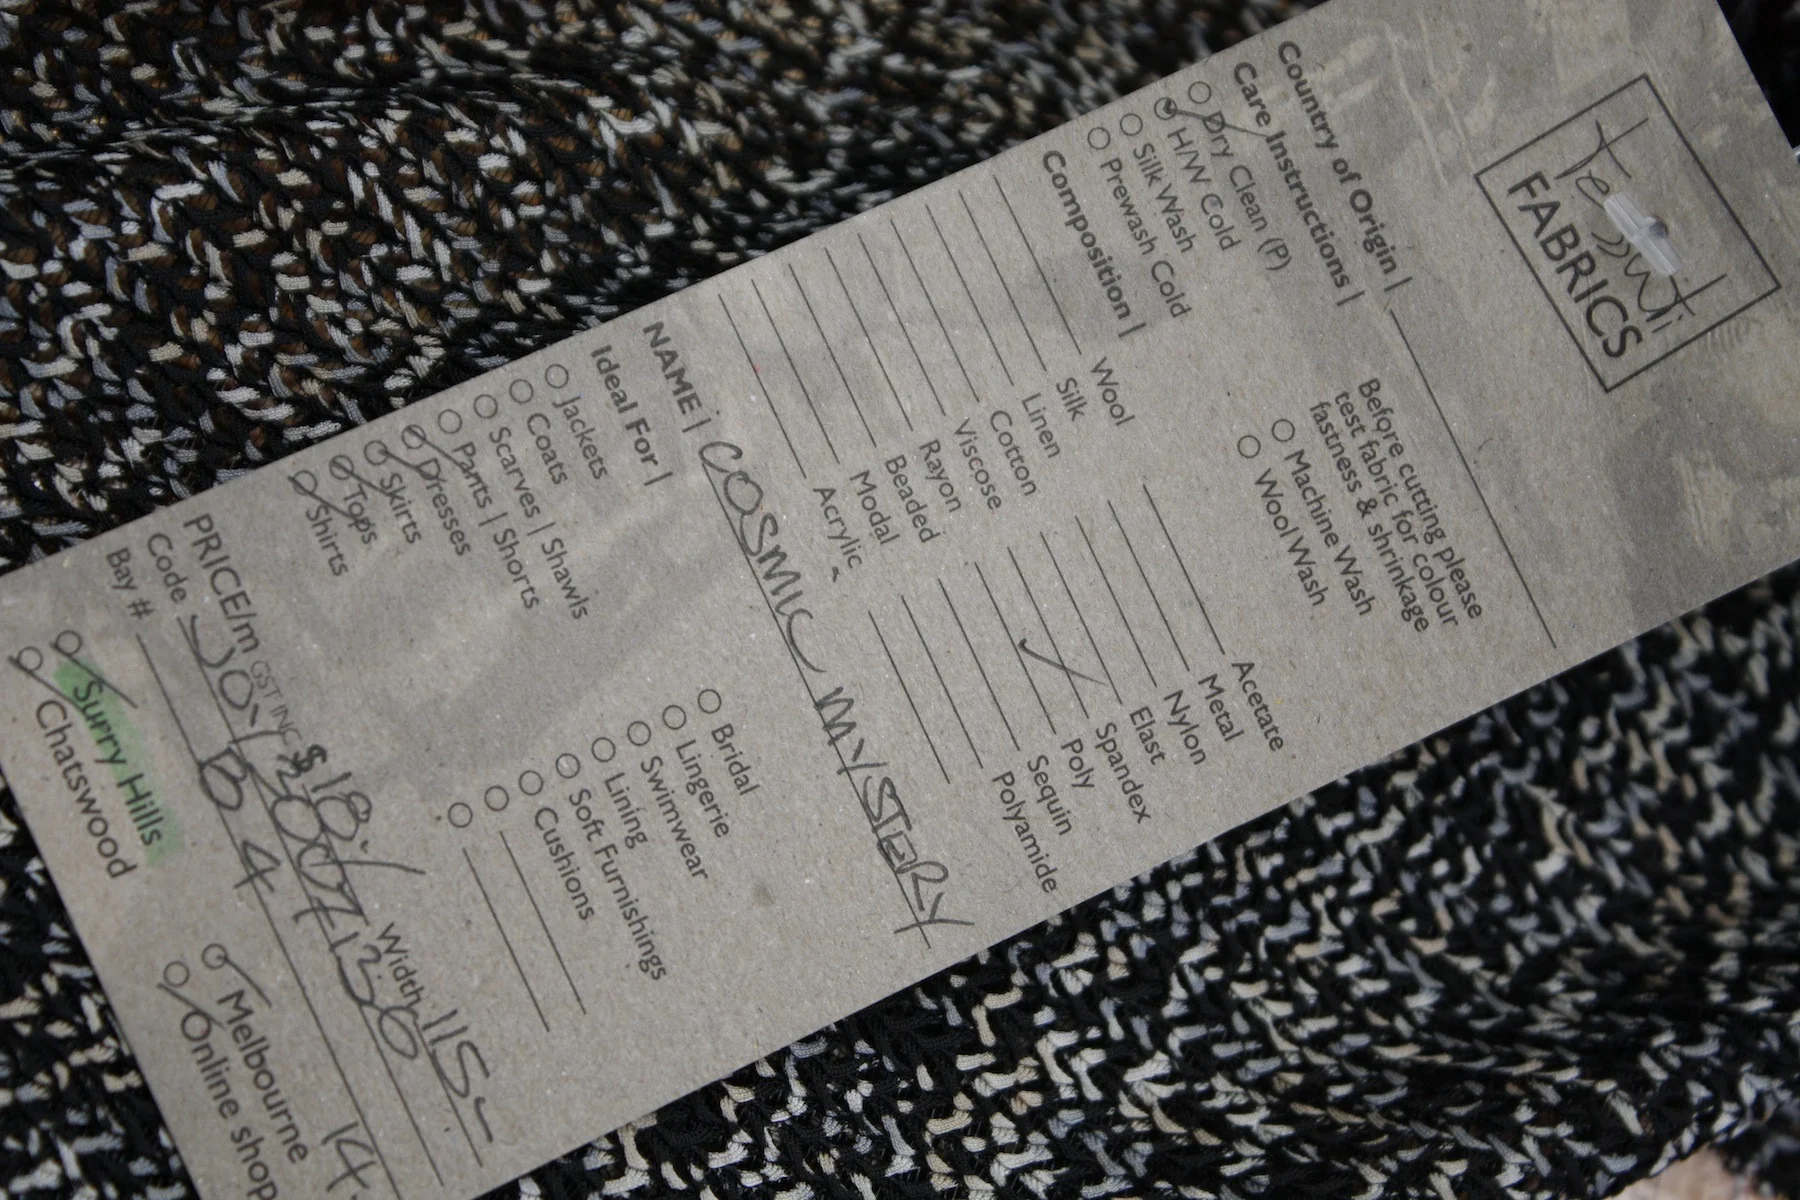 Tessuti
FABRICS
Country of Origin |
Care Instructions |
Dry Clean (P)
H/W Cold
Silk Wash
Prewash Cold
Before cutting please
test fabric for colour
fastness & shrinkage
Machine Wash
Wool Wash
Composition |
Wool
Silk
Linen
Cotton
Viscose
Rayon
Beaded
Modal
Acrylic
Acetate
Metal
Nylon
Elast
Spandex
Poly
Sequin
Polyamide
NAME | COSMIC MYSTERY
Ideal For |
Jackets
Coats
Scarves | Shawls
Pants | Shorts
Dresses
Skirts
Tops
Shirts
Bridal
Lingerie
Swimwear
Lining
Soft Furnishings
Cushions
PRICE/m GST INC $18.- Width 115-
Code
Bay # B 4 14.
Surry Hills
Chatswood
Melbourne
Online shop